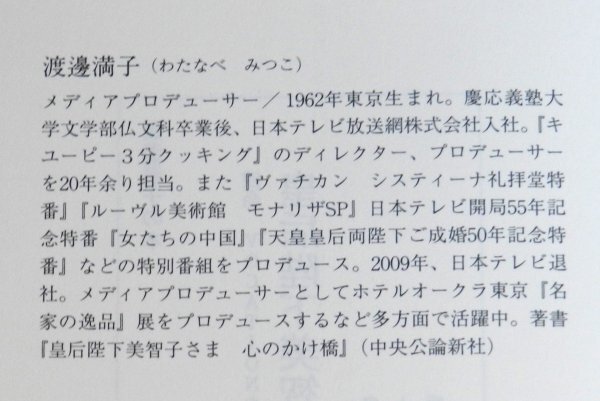 渡邊満子（わたなべ　みつこ）
メディアプロデューサー／1962年東京生まれ。慶応義塾大
学文学部仏文科卒業後、日本テレビ放送網株式会社入社。『キ
ユーピー３分クッキング』のディレクター、プロデューサー
を20年余り担当。また『ヴァチカン　システィーナ礼拝堂特
番』『ルーヴル美術館　モナリザSP』日本テレビ開局55年記
念特番『女たちの中国』『天皇皇后両陛下ご成婚50年記念特
番』などの特別番組をプロデュース。2009年、日本テレビ退
社。メディアプロデューサーとしてホテルオークラ東京『名
家の逸品』展をプロデュースするなど多方面で活躍中。著書
『皇后陛下美智子さま　心のかけ橋』（中央公論新社）